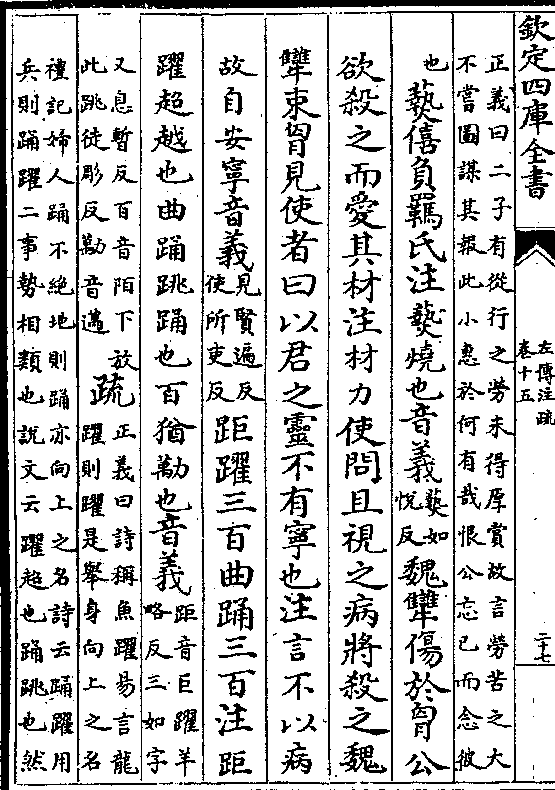 欽定四庫全書
左傳注疏
卷十五
二十七
正義曰二子有從行之勞未得厚賞故言勞苦之大
不嘗圖謀其報此小惠於何有哉恨公忘已而念彼
也
爇僖負羈氏注爇燒也音義
爇如
悅反
魏犨傷於胷公
欲殺之而愛其材注材力使問且視之病將殺之魏
犨束胷見使者曰以君之靈不有寧也注言不以病
故自安寧音義
見賢遍反
使所吏反
距躍三百曲踊三百注距
躍超越也曲踊跳踊也百猶勱也音義
距音巨躍羊
略反三如字
又息暫反百音陌下放
此跳徒彫反勱音邁
疏
正義曰詩稱魚躍易言龍
躍則躍是舉身向上之名
禮記婦人踊不絶地則踊亦向上之名詩云踊躍用
兵則踊躍二事勢相類也說文云躍超也踊跳也然